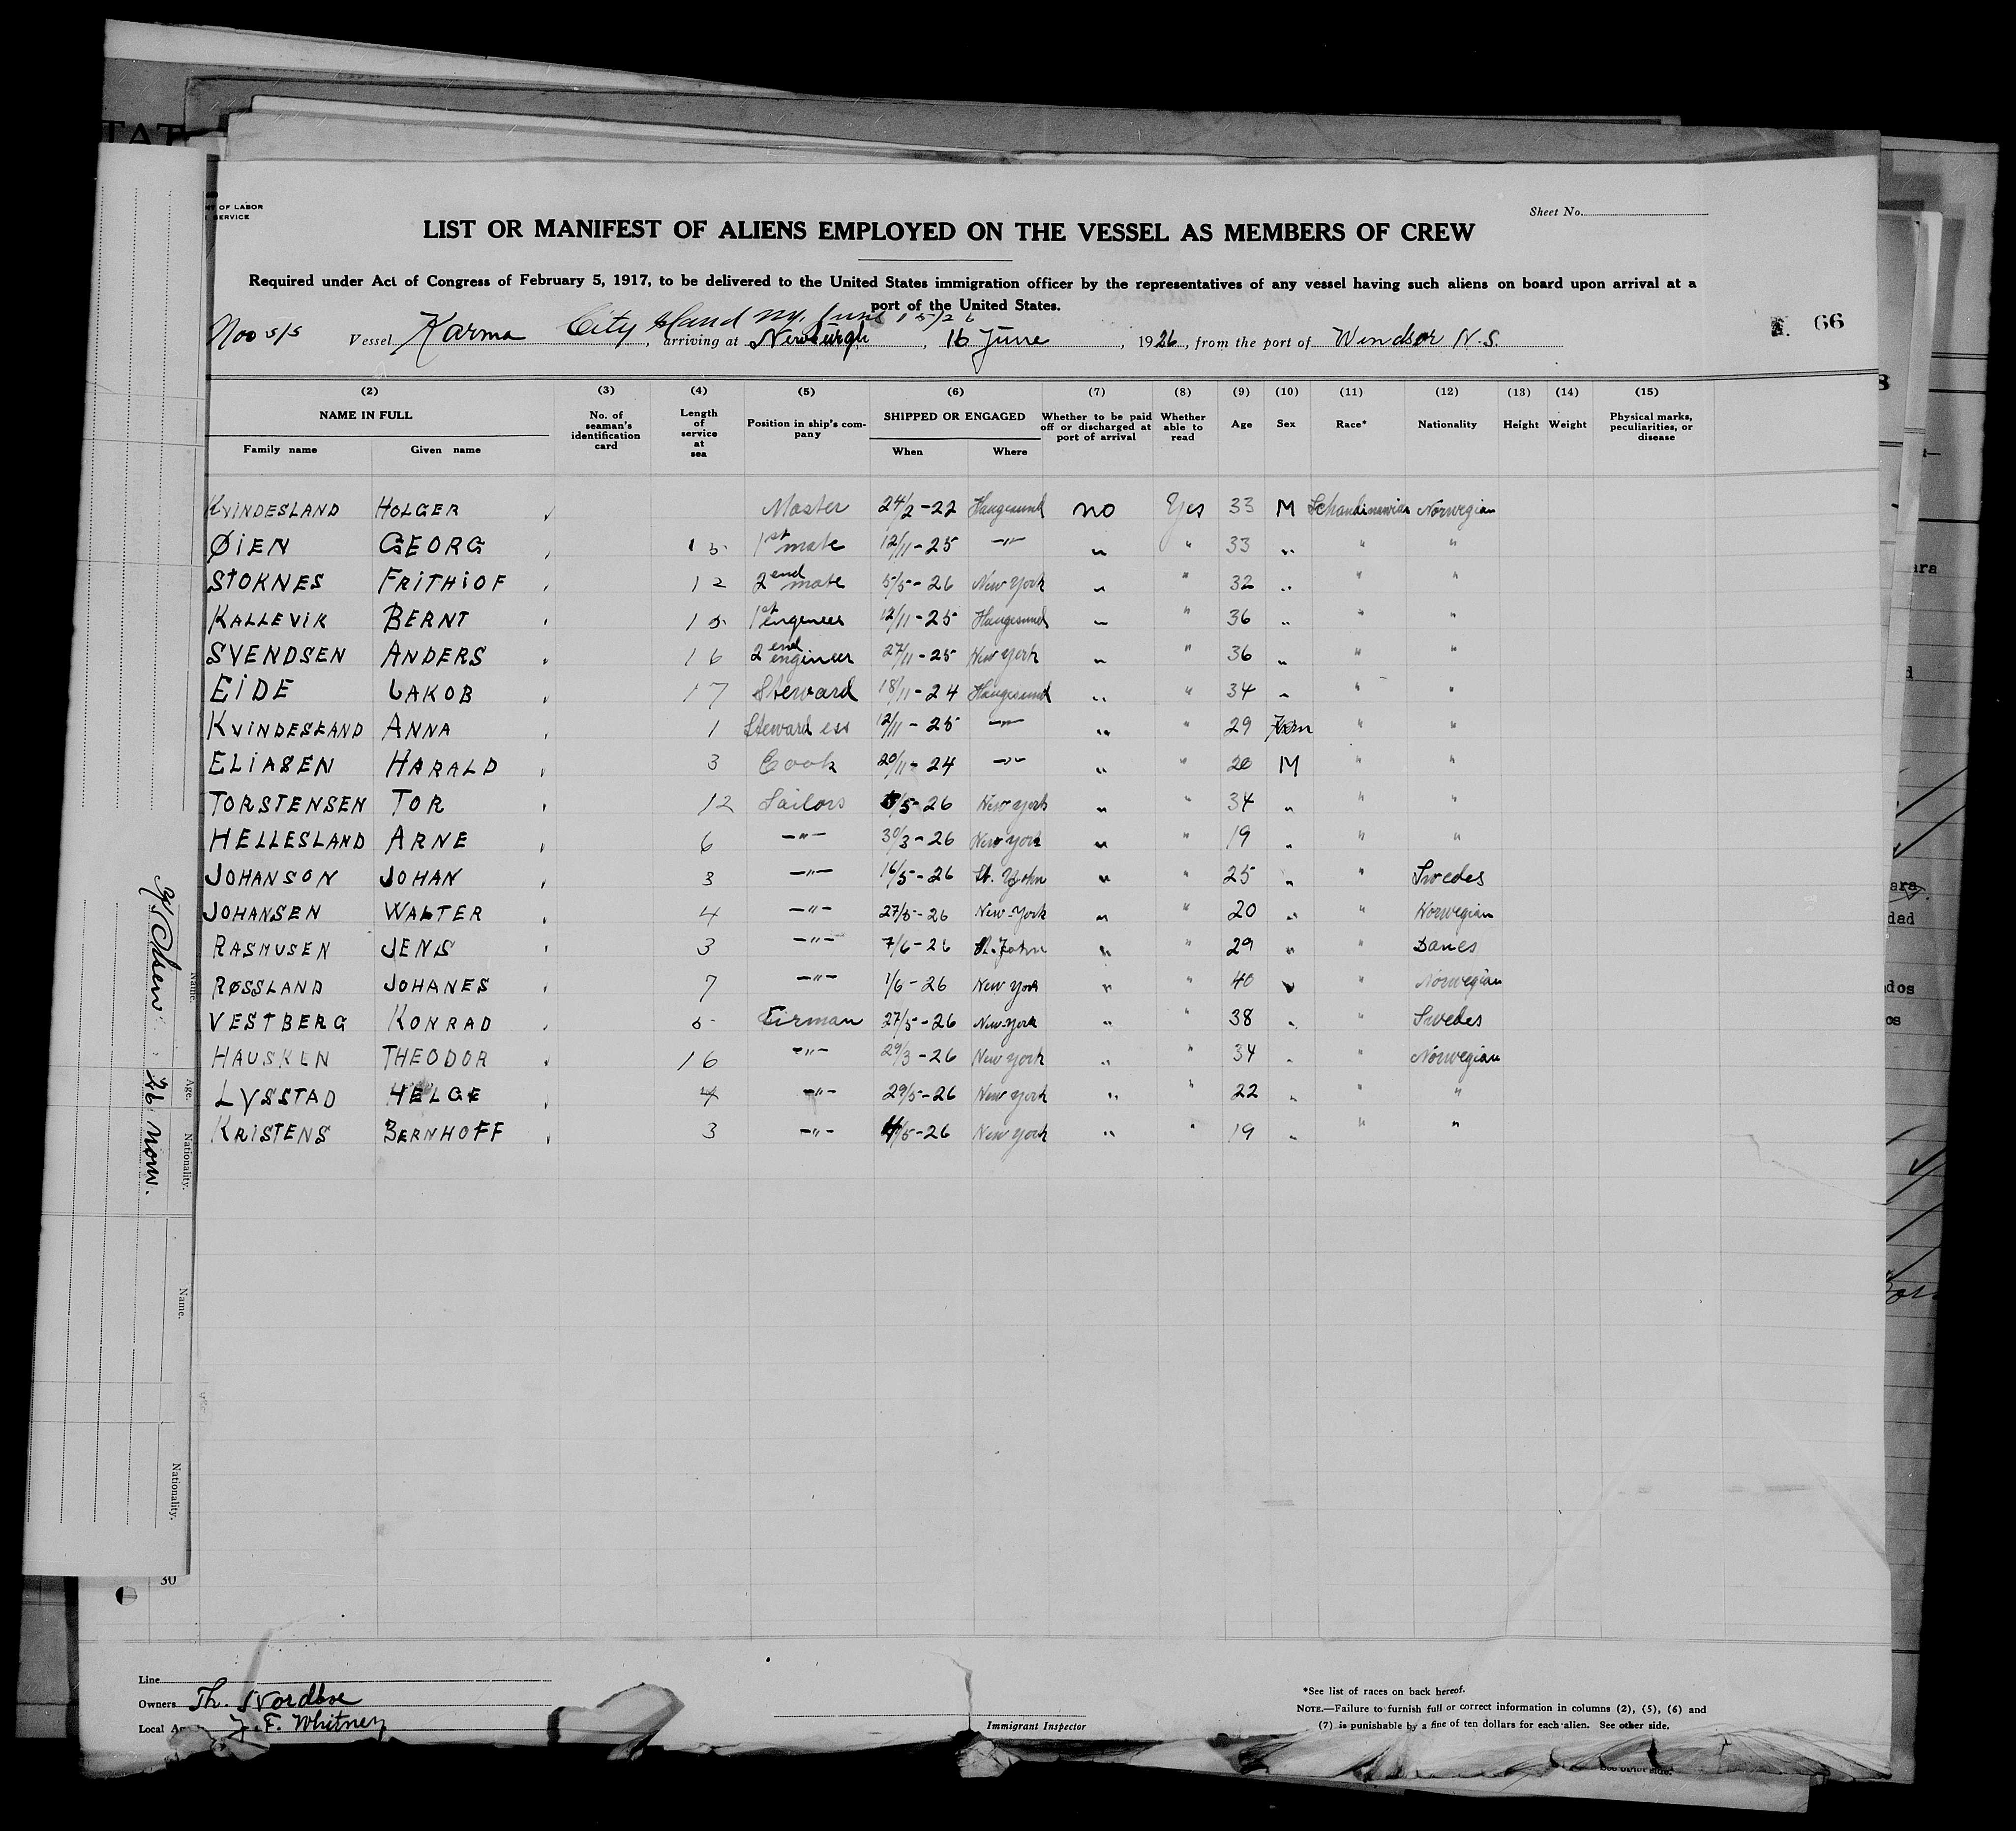 TAT
NT OF LABOR
SERVICE
Sheet No.
LIST OR MANIFEST OF ALIENS EMPLOYED ON THE VESSEL AS MEMBERS OF CREW
Required under Act of Congress of February 5, 1917, to be delivered to the United States immigration officer by the representatives of any vessel having such aliens on board upon arrival at a
port of the United States.
City Island NY. June 15/26
Noo S/S Vessel Karma, arriving at Newburgh, 16 June, 1926, from the port of Windsor N.S.
66
(2) (3) (4) (5) (6) (7) (8) (9) (10) (11) (12) (13) (14) (15)
NAME IN FULL No. of seaman's identification card Length of service at sea Position in ship's company SHIPPED OR ENGAGED Whether to be paid off or discharged at port of arrival Whether able to read Age Sex Race* Nationality Height Weight Physical marks, peculiarities, or disease
Family name Given name When Where
KVINDESLAND HOLGER Master 24/2-22 Haugesund no Yes 33 M Schandinavian Norwegian
ØIEN GEORG 15 1st mate 12/11-25 -"- " " 33 " " "
STOKNES FRITHIOF 12 2end mate 5/5-26 New York " " 32 " " "
KALLEVIK BERNT 15 1st engineer 12/11-25 Haugesund " " 36 " " "
SVENDSEN ANDERS 16 2end engineer 27/11-25 New York " " 36 " " "
EIDE JAKOB 17 Steward 18/11-24 Haugesund " " 34 " " "
KVINDESLAND ANNA 1 Stewardess 12/11-25 -"- " " 29 Fem " "
ELIASEN HARALD 3 Cook 20/11-24 -"- " " 20 M " "
TORSTENSEN TOR 12 Sailors 5/5-26 New York " " 34 " " "
HELLESLAND ARNE 6 -"- 30/3-26 New York " " 19 " " "
JOHANSON JOHAN 3 -"- 16/5-26 St. John " " 25 " " Swedes
JOHANSEN WALTER 4 -"- 27/5-26 New York " " 20 " " Norwegian
RASMUSEN JENS 3 -"- 7/6-26 St. John " " 29 " " Danes
RØSSLAND JOHANES 7 -"- 1/6-26 New York " " 40 " " Norwegian
VESTBERG KONRAD 5 Firman 27/5-26 New York " " 38 " " Swedes
HAUSKEN THEODOR 16 -"- 29/3-26 New York " " 34 " " Norwegian
LYSSTAD HELGE 4 -"- 29/5-26 New York " " 22 " " "
KRISTENS BERNHOFF 3 -"- /5-26 New York " " 19 " " "
Olsen 26 norw.
Name. Age. Nationality.
Name. Nationality.
30
Line
Owners Th. Nordboe
Local A F. Whitney
Immigrant Inspector
*See list of races on back hereof.
NOTE.—Failure to furnish full or correct information in columns (2), (5), (6) and
(7) is punishable by a fine of ten dollars for each alien. See other side.
See other side.
8
ara
ara
dad
dos
os